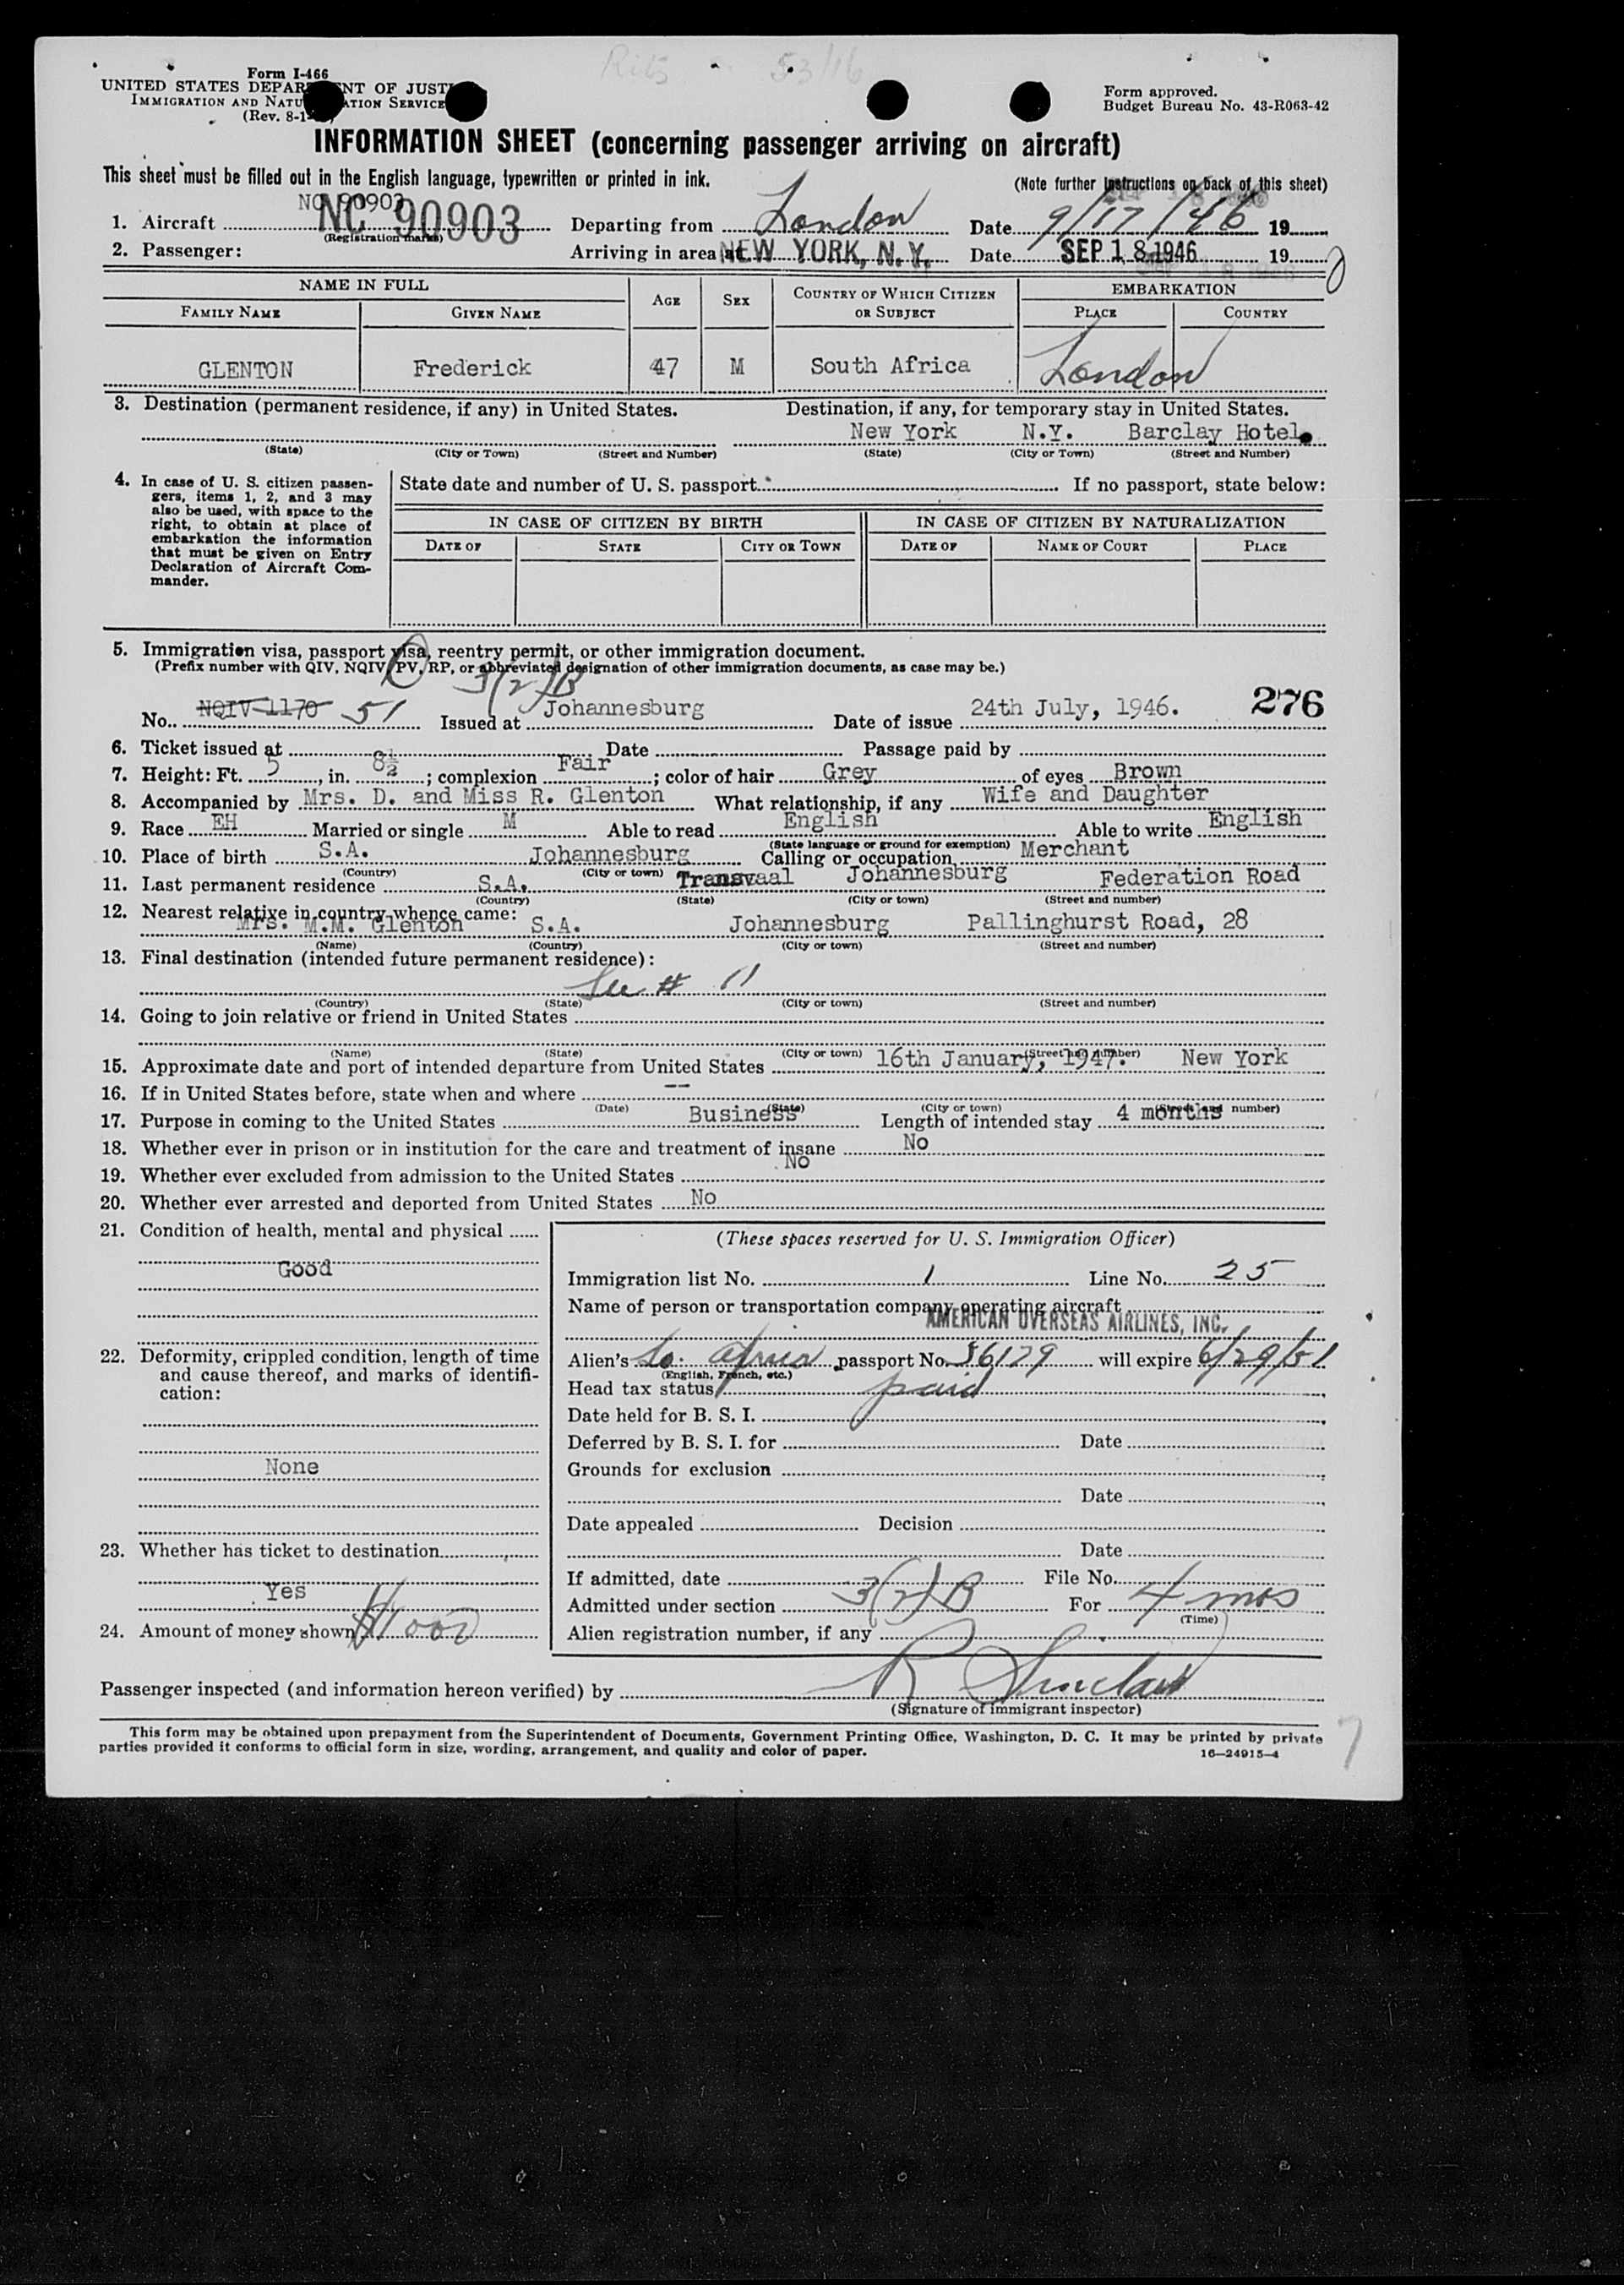 Form I-466
UNITED STATES DEPARTMENT OF JUSTICE
IMMIGRATION AND NATURALIZATION SERVICE
(Rev. 8-1-
Form approved.
Budget Bureau No. 43-R063-42
INFORMATION SHEET (concerning passenger arriving on aircraft)
This sheet must be filled out in the English language, typewritten or printed in ink.
(Note further instructions on back of this sheet)
NC 90903
1. Aircraft NC 90903 Departing from London Date 9/17/46 19
(Registration marks)
2. Passenger: Arriving in area at NEW YORK, N. Y. Date SEP 18 1946 19
NAME IN FULL AGE SEX COUNTRY OF WHICH CITIZEN OR SUBJECT EMBARKATION
FAMILY NAME GIVEN NAME PLACE COUNTRY
GLENTON Frederick 47 M South Africa London
3. Destination (permanent residence, if any) in United States. Destination, if any, for temporary stay in United States.
New York N.Y. Barclay Hotel.
(State) (City or Town) (Street and Number) (State) (City or Town) (Street and Number)
4. In case of U. S. citizen passen-
gers, items 1, 2, and 3 may
also be used, with space to the
right, to obtain at place of
embarkation the information
that must be given on Entry
Declaration of Aircraft Com-
mander.
State date and number of U. S. passport If no passport, state below:
IN CASE OF CITIZEN BY BIRTH IN CASE OF CITIZEN BY NATURALIZATION
DATE OF STATE CITY OR TOWN DATE OF NAME OF COURT PLACE
5. Immigration visa, passport visa, reentry permit, or other immigration document.
(Prefix number with QIV, NQIV, PV, RP, or abbreviated designation of other immigration documents, as case may be.)
3(2)B
No. NQIV-1170 51 Issued at Johannesburg Date of issue 24th July, 1946. 276
6. Ticket issued at Date Passage paid by
7. Height: Ft. 5, in. 8½; complexion Fair; color of hair Grey of eyes Brown
8. Accompanied by Mrs. D. and Miss R. Glenton What relationship, if any Wife and Daughter
9. Race EH Married or single M Able to read English Able to write English
(State language or ground for exemption)
10. Place of birth S.A. Johannesburg Calling or occupation Merchant
(Country) (City or town)
11. Last permanent residence S.A. Transvaal Johannesburg Federation Road
(Country) (State) (City or town) (Street and number)
12. Nearest relative in country whence came:
Mrs. M.M. Glenton S.A. Johannesburg Pallinghurst Road, 28
(Name) (Country) (City or town) (Street and number)
13. Final destination (intended future permanent residence):
See # 11
(Country) (State) (City or town) (Street and number)
14. Going to join relative or friend in United States
(Name) (State) (City or town) (Street and number)
15. Approximate date and port of intended departure from United States 16th January, 1947. New York
16. If in United States before, state when and where --
(Date) (State) (City or town) (Street and number)
17. Purpose in coming to the United States Business Length of intended stay 4 months
18. Whether ever in prison or in institution for the care and treatment of insane No
19. Whether ever excluded from admission to the United States No
20. Whether ever arrested and deported from United States No
21. Condition of health, mental and physical
Good
22. Deformity, crippled condition, length of time
and cause thereof, and marks of identifi-
cation:
None
23. Whether has ticket to destination
Yes
24. Amount of money shown $1000
(These spaces reserved for U. S. Immigration Officer)
Immigration list No. 1 Line No. 25
Name of person or transportation company operating aircraft
AMERICAN OVERSEAS AIRLINES, INC.
Alien's So. Africa passport No. 36129 will expire 6/29/51
(English, French, etc.)
Head tax status paid
Date held for B. S. I.
Deferred by B. S. I. for Date
Grounds for exclusion
Date
Date appealed Decision
Date
If admitted, date File No.
Admitted under section 3(2)B For 4 mos
(Time)
Alien registration number, if any
Passenger inspected (and information hereon verified) by R Sinclair
(Signature of immigrant inspector)
This form may be obtained upon prepayment from the Superintendent of Documents, Government Printing Office, Washington, D. C. It may be printed by private
parties provided it conforms to official form in size, wording, arrangement, and quality and color of paper. 16—24915-4
7